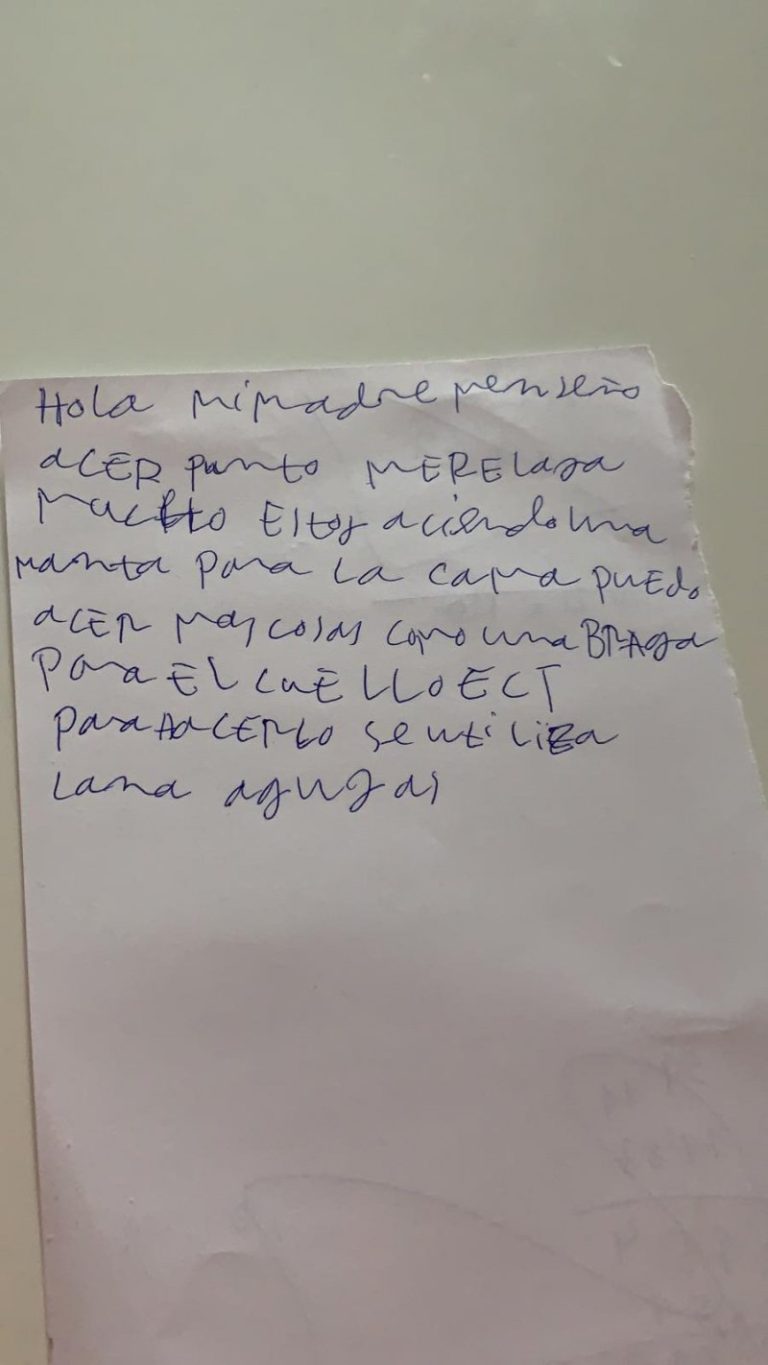 Hola mi madre menseño
aCER punto MERELaga
mucHo EStoy aciendo una
manta para La cama puEdo
aCER mas cosas como una BRAga
para EL cuELLo ECT
para HaCERLo se utiliza
Lana agujas